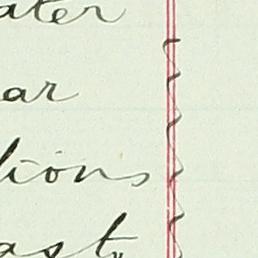 ater
ar
tions
ast,